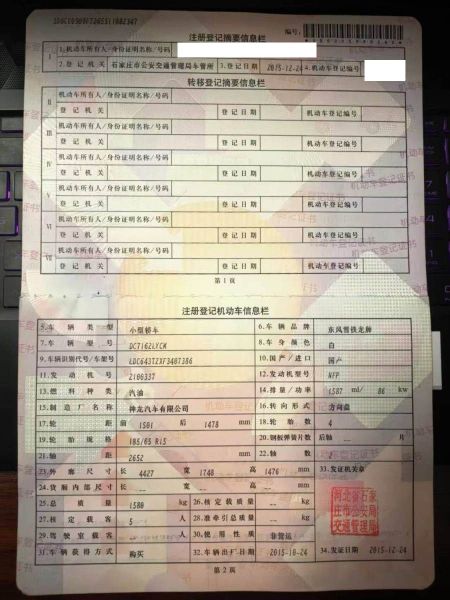 注册登记摘要信息栏
编号：
I 1.机动车所有人/身份证明名称/号码
2.登记机关 石家庄市公安交通管理局车管所 3.登记日期 2015-12-24 4.机动车登记编号
转移登记摘要信息栏
II 机动车所有人/身份证明名称/号码
登记机关 登记日期 机动车登记编号
III 机动车所有人/身份证明名称/号码
登记机关 登记日期 机动车登记编号
IV 机动车所有人/身份证明名称/号码
登记机关 登记日期 机动车登记编号
V 机动车所有人/身份证明名称/号码
登记机关 登记日期 机动车登记编号
VI 机动车所有人/身份证明名称/号码
登记机关 登记日期 机动车登记编号
VII 机动车所有人/身份证明名称/号码
登记机关 登记日期 机动车登记编号
第1页
注册登记机动车信息栏
5.车辆类型 小型轿车 6.车辆品牌 东风雪铁龙牌
7.车辆型号 DC7162LYCM 8.车身颜色 白
9.车辆识别代号/车架号 LDC643T2XF3487386 10.国产/进口 国产
11.发动机号 2100337 12.发动机型号 NFP
13.燃料种类 汽油 14.排量/功率 1587 ml/ 86 kw
15.制造厂名称 神龙汽车有限公司 16.转向形式 方向盘
17.轮距 前 1501 后 1478 mm 18.轮胎数 4
19.轮胎规格 185/65 R15 20.钢板弹簧片数 后轴 -- 片
21.轴距 2652 mm 22.轴数 2
23.外廓尺寸 长 4427 宽 1748 高 1476 mm 33.发证机关章
24.货厢内部尺寸 长 -- 宽 -- 高 -- mm
25.总质量 1580 kg 26.核定载质量 -- kg
27.核定载客 5 人 28.准牵引总质量 -- kg
29.驾驶室载客 -- 人 30.使用性质 非营运
河北省石家庄市公安局交通管理局
31.车辆获得方式 购买 32.车辆出厂日期 2015-10-24 34.发证日期 2015-12-24
第2页